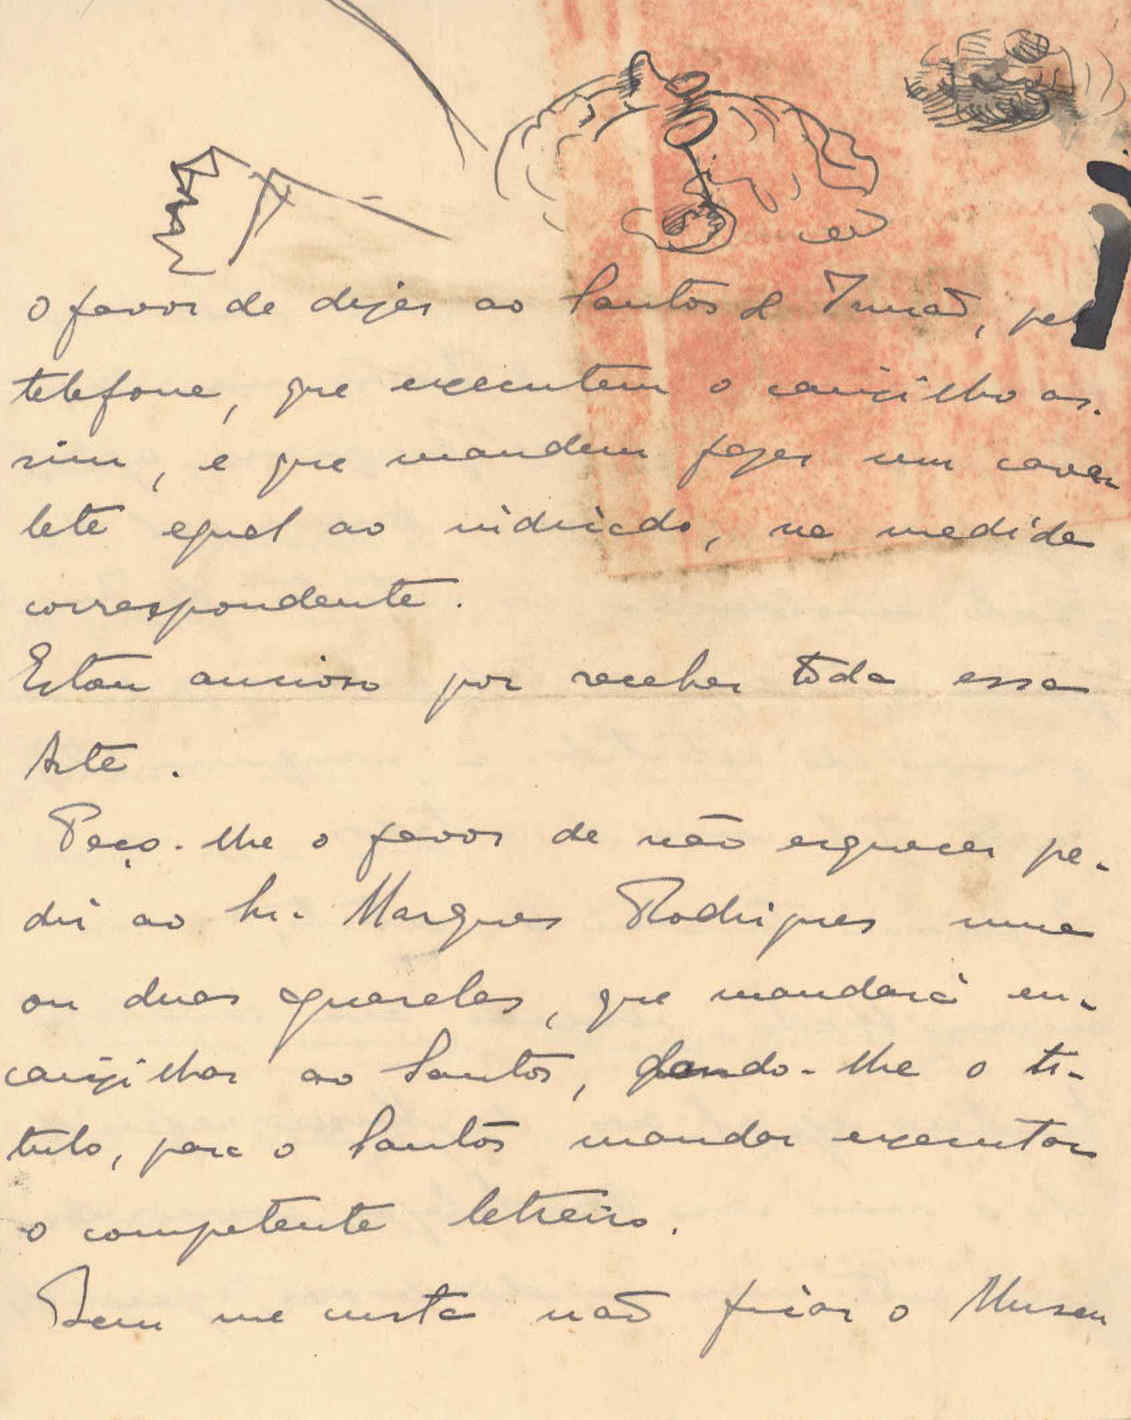 o favor de dizer ao Santos & Irmão, pelo
telefone, que executem o caixilho as-
sim, e que mandem fazer um cava-
lete egual ao indicado, na medida
correspondente.
Estou ancioso por receber toda essa
Arte.
Peço-lhe o favor de não esquecer pe-
dir ao Sr. Marques Rodrigues uma
ou duas aguarelas, que mandará en-
caixilhar ao Santos, dando-lhe o ti-
tulo, para o Santos mandar executar
o competente letreiro.
Bem me custa não ficar o Museu